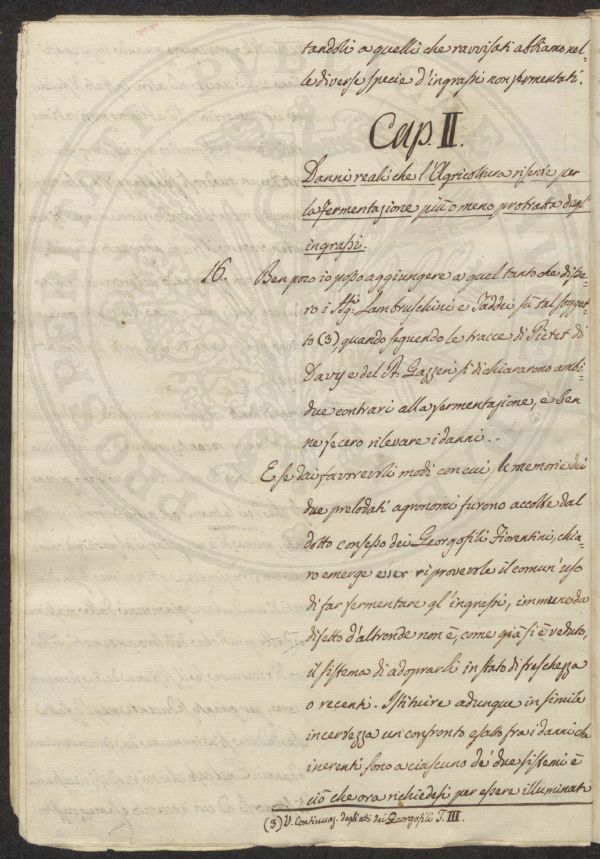 tandoli a quelli che ravvisati abbiamo nel-
le diverse specie d'ingrassi non fermentati.
Cap. II.
Danni reali che l'Agricoltura risente per
la fermentazione più o meno protratta degl'
ingrassi.
16. Ben poco io posso aggiungere a quel tanto che disse-
ro i Sigi. Lambruschini e Taddei su tal sogget-
to (3), quando seguendo le tracce di Pictet di
Davy e del P. Gazzeri si dichiararono ambi-
due contrari alla fermentazione, e ben
ne fecero rilevare i danni.
E se dai favorevoli modi con cui, le memorie dei
due prelodati agronomi furono accolte dal
dotto consesso dei Georgofili Fiorentini, chia-
ro emerge esser riprovevole il comun' uso
di far fermentare gl' ingrassi, immune da
difetto d'altronde non è, come già si è veduto,
il sistema di adoprarli in stato di freschezza
o recenti. Istituire adunque in simile
incertezza un confronto esatto fra i danni che
inerenti sono a ciascuno de' due sistemi è
ciò che ora richiedesi per essere illuminati
(3) V. Continuaz. degli atti dei Georgofili T. III.